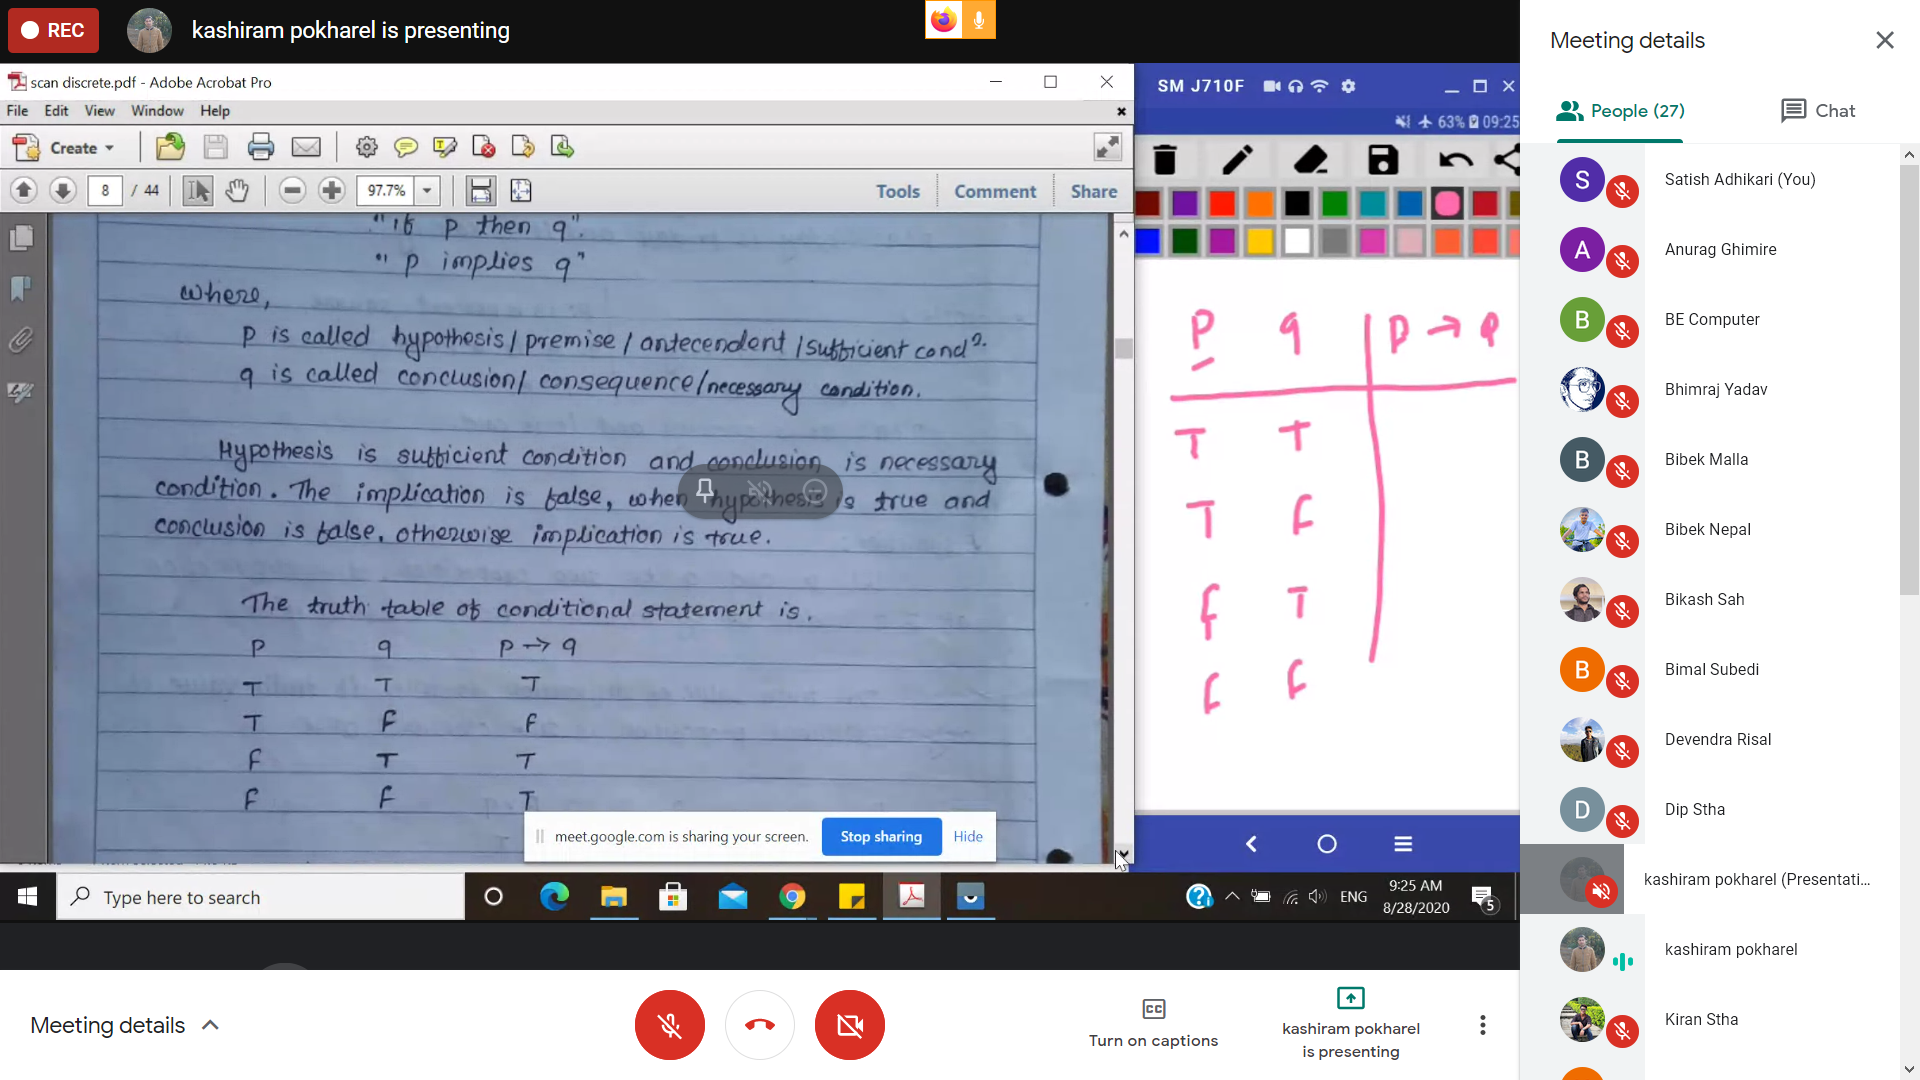 REC
kashiram pokharel is presenting
scan discrete.pdf - Adobe Acrobat Pro
File Edit View Window Help
Create
8 / 44
97.7%
Tools Comment Share
"if p then q".
"p implies q"
where,
p is called hypothesis/premise/antecendent/sufficient condn.
q is called conclusion/consequence/necessary condition.
Hypothesis is sufficient condition and conclusion is necessary
condition. The implication is false, when hypothesis is true and
conclusion is false, otherwise implication is true.
The truth table of conditional statement is,
p q p → q
T T T
T F F
F T T
F F T
meet.google.com is sharing your screen.
Stop sharing
Hide
SM J710F
63% 09:25
P q P → q
T T
T F
F T
F F
Type here to search
ENG
9:25 AM
8/28/2020
5
Meeting details
Turn on captions
kashiram pokharel
is presenting
Meeting details
People (27)
Chat
S
Satish Adhikari (You)
A
Anurag Ghimire
B
BE Computer
Bhimraj Yadav
B
Bibek Malla
Bibek Nepal
Bikash Sah
B
Bimal Subedi
Devendra Risal
D
Dip Stha
kashiram pokharel (Presentati...
kashiram pokharel
Kiran Stha